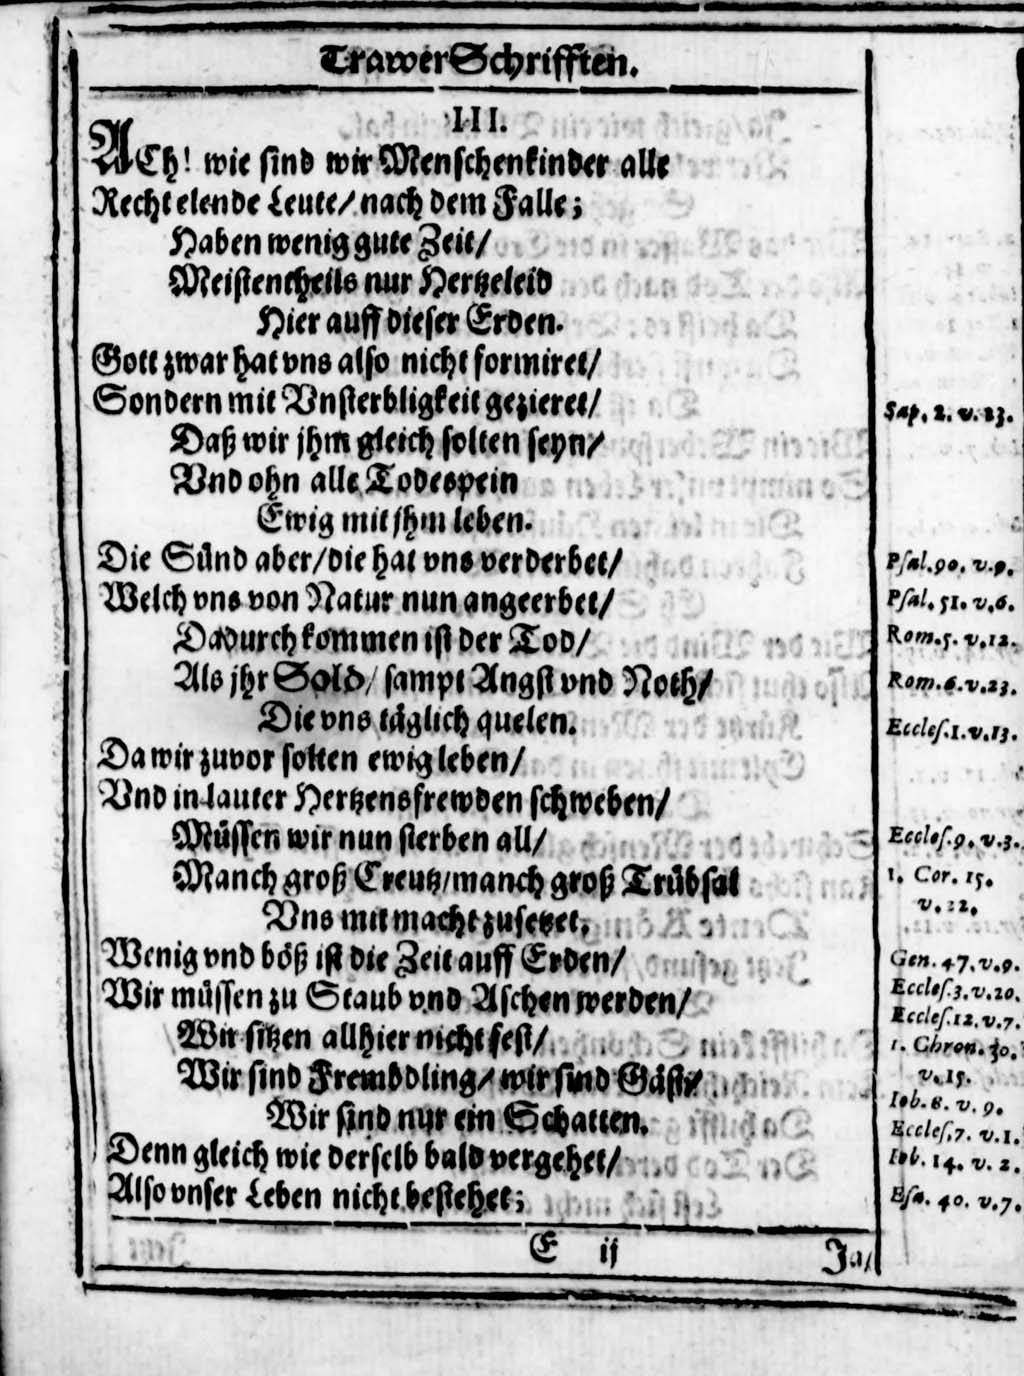 TrawerSchrifften.
III.
ACh! wie sind wir Menschenkinder alle
Recht elende Leute/ nach dem Falle;
Haben wenig gute Zeit/
Meistentheils nur Hertzeleid
Hier auff dieser Erden.
Gott zwar hat vns also nicht formiret/
Sondern mit Vnsterbligkeit gezieret/
Sap. 2. v. 23.
Daß wir jhm gleich solten seyn/
Vnd ohn alle Todespein
Ewig mit jhm leben.
Die Sünd aber/die hat vns verderbet/
Psal. 90. v. 9.
Welch vns von Natur nun angeerbet/
Psal. 51. v. 6.
Dadurch kommen ist der Tod/
Rom. 5. v. 12.
Als jhr Sold/ sampt Angst vnd Noth/
Rom. 6. v. 23.
Die vns täglich quelen.
Eccles. 1. v. 13.
Da wir zuvor solten ewig leben/
Vnd in lauter Hertzensfrewden schweben/
Müssen wir nun sterben all/
Eccles. 9. v. 3.
Manch groß Creutz/manch groß Trübsal
1. Cor. 15.
v. 22.
Vns mit macht zusetzet.
Wenig vnd böß ist die Zeit auff Erden/
Gen. 47. v. 9.
Wir müssen zu Staub vnd Aschen werden/
Eccles. 3. v. 20.
Eccles. 12. v. 7.
Wir sitzen allhier nicht fest/
1. Chron. 30.
v. 15.
Wir sind Frembdling/ wir sind Gäste/
Iob. 8. v. 9.
Wir sind nur ein Schatten.
Eccles. 7. v. 1.
Denn gleich wie derselb bald vergehet/
Iob. 14. v. 2.
Also vnser Leben nicht bestehet;
Esa. 40. v. 7.
E ij
Ja/